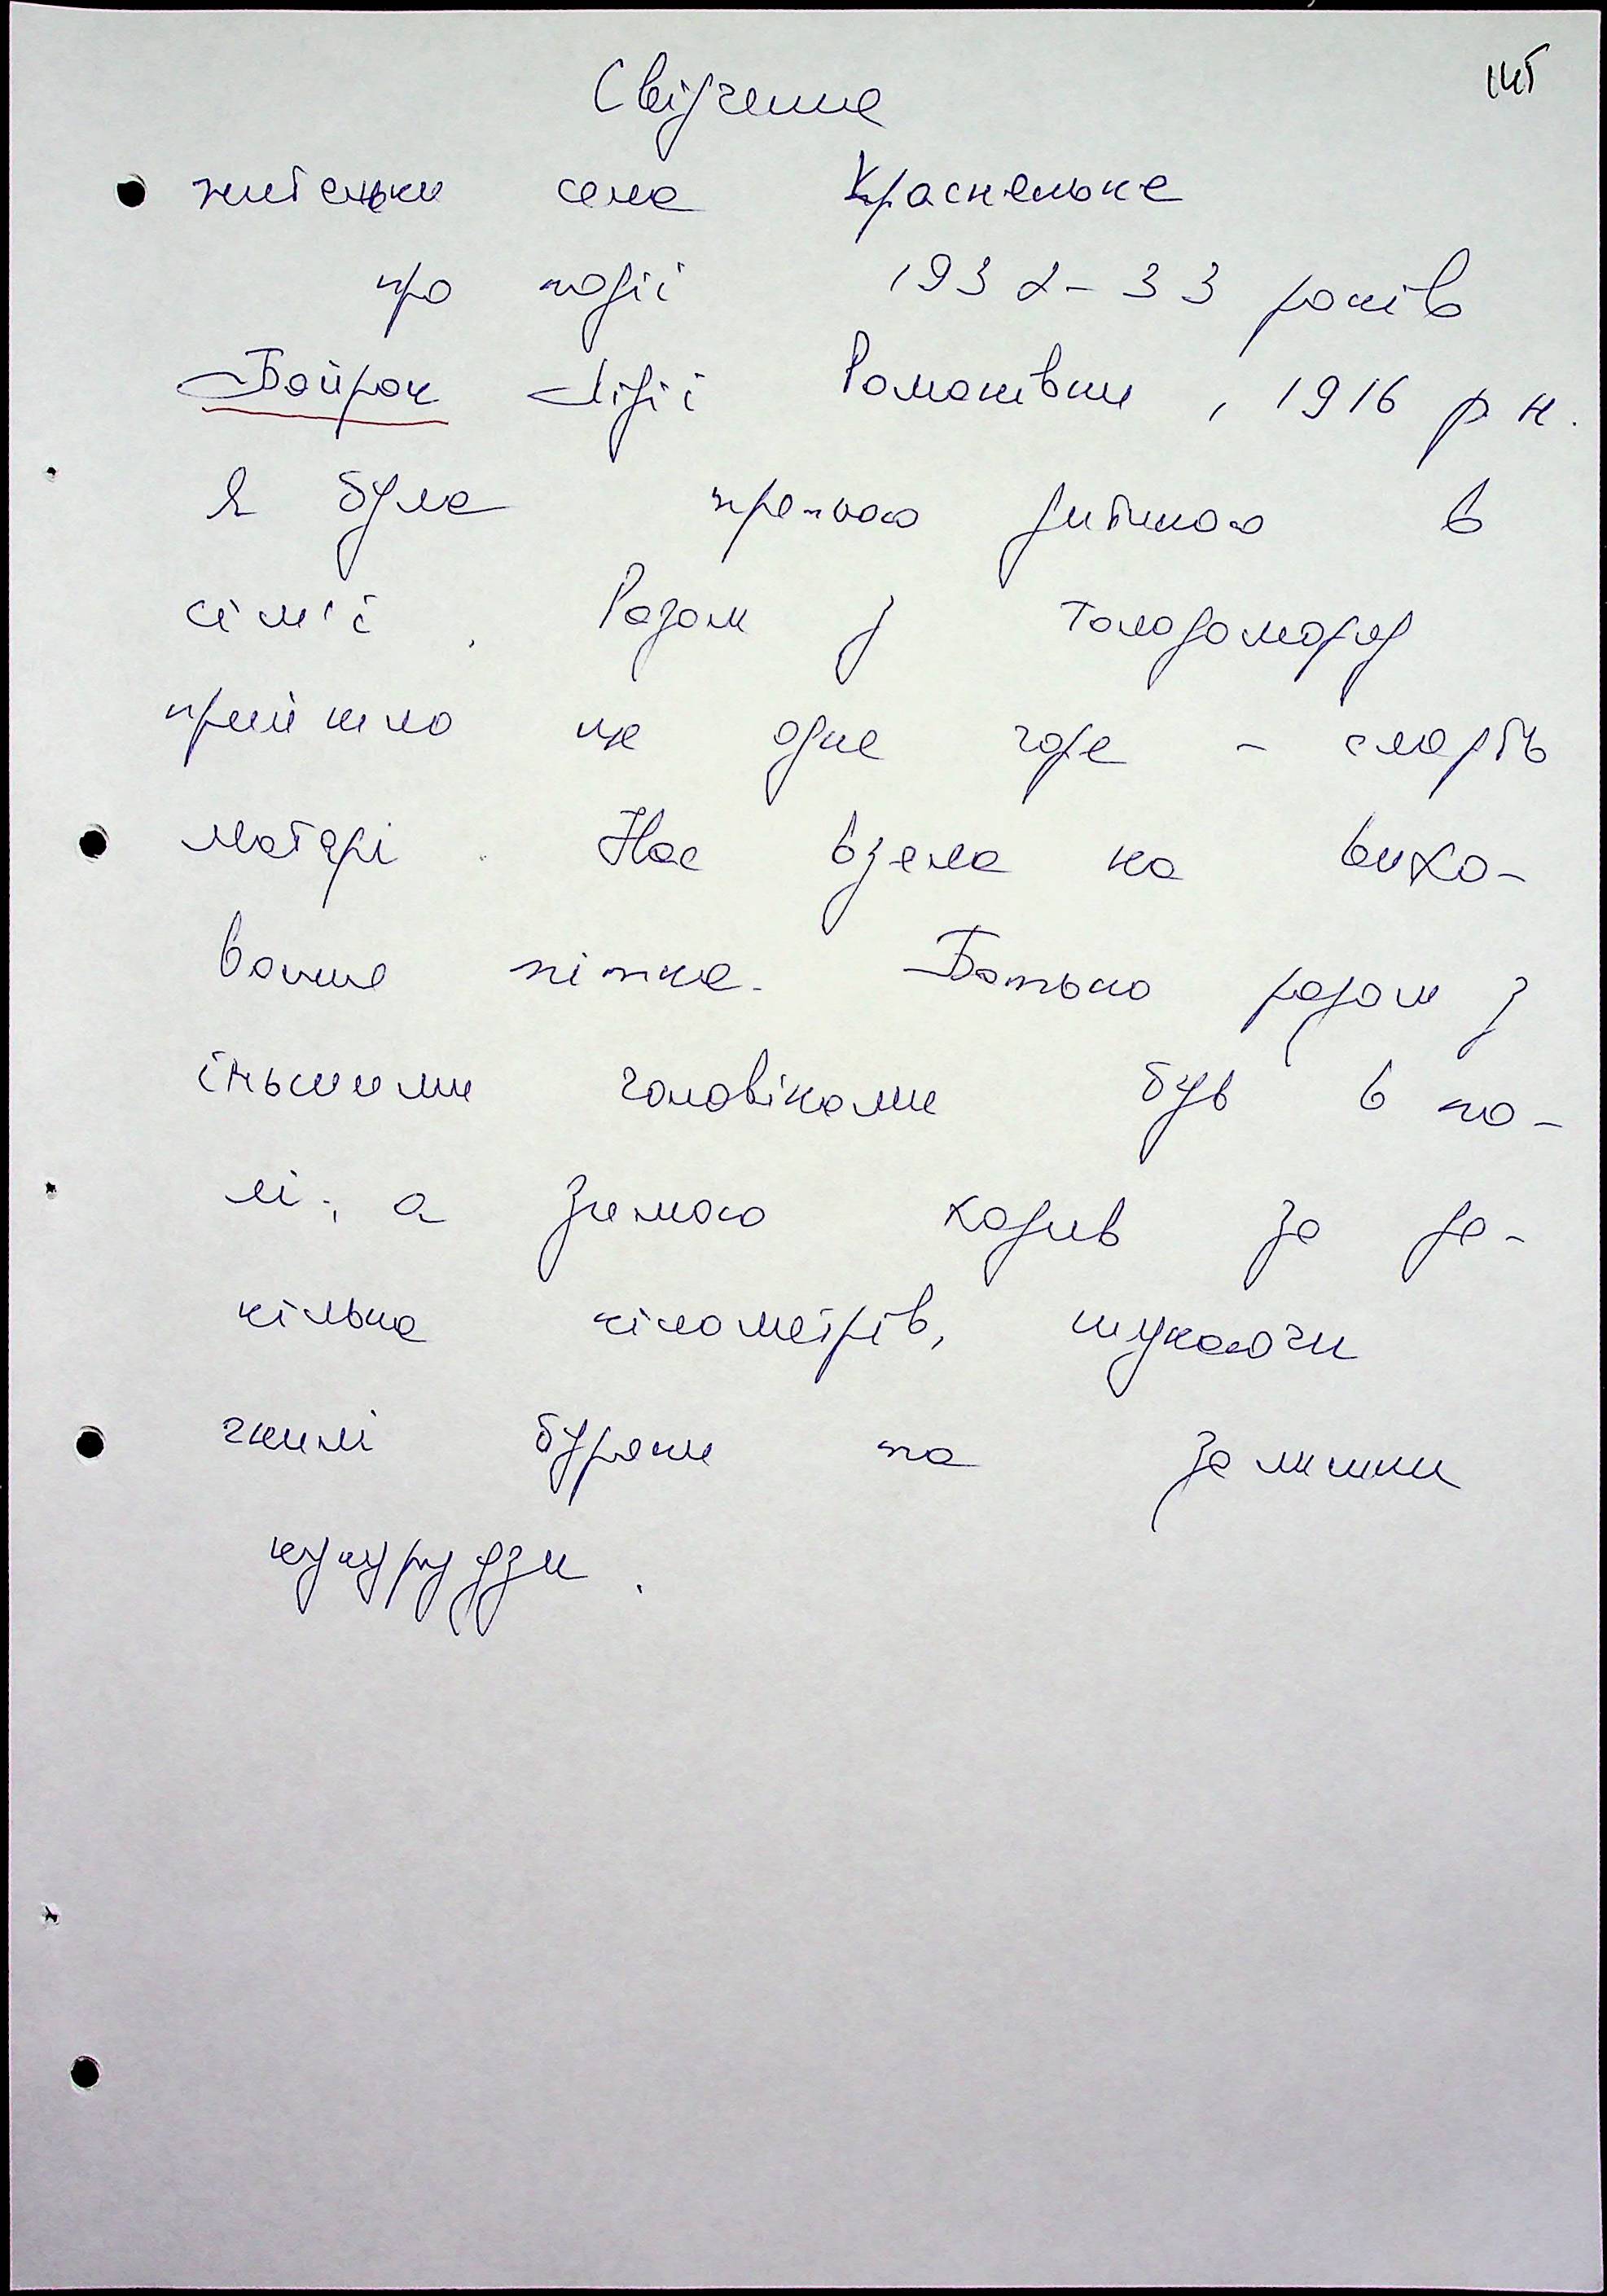 145
Свідчення
жительки села Красненьке
про події 1932-33 років
Байрак Лідії Романівни, 1916 р н.
Я була третьою дитиною в
сім'ї. Разом з голодомором
прийшло ще одне горе - смерть
матері. Нас взяла на вихо-
вання тітка. Батько разом з
іньшими чоловіками був в по-
лі, а зимою ходив за де-
кілька кілометрів, шукаючи
гнилі буряки та залишки
кукурудзи.